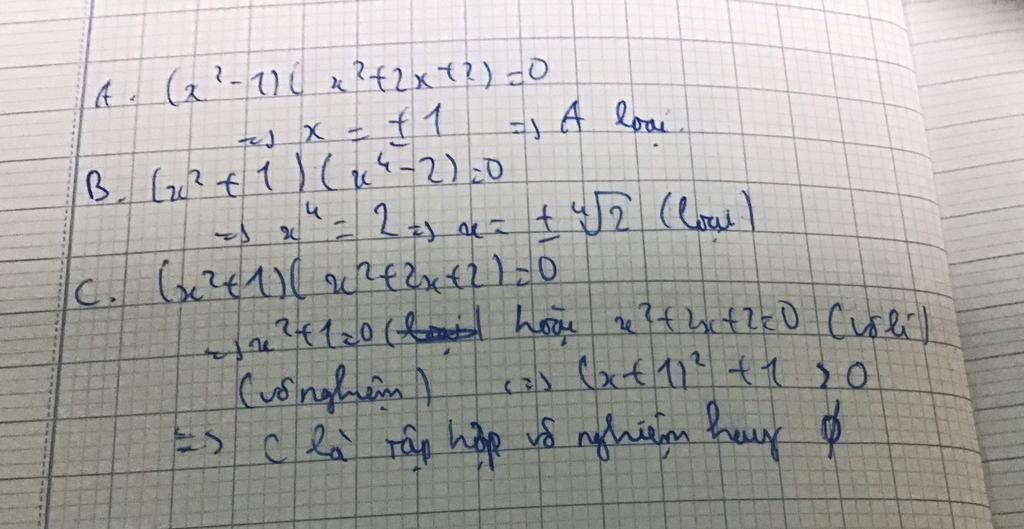 A. (x²-1)(x²+2x+2)=0
=> x = ±1 => A loại.
B. (x²+1)(x⁴-2)=0
=> x⁴ = 2 => x = ± ⁴√2 (loại)
C. (x²+1)(x²+2x+2)=0
=> x²+1=0 ( hoặc x²+2x+2=0 (vô lí)
(vô nghiệm) <=> (x+1)² +1 > 0
=> C là tập hợp vô nghiệm hay ∅